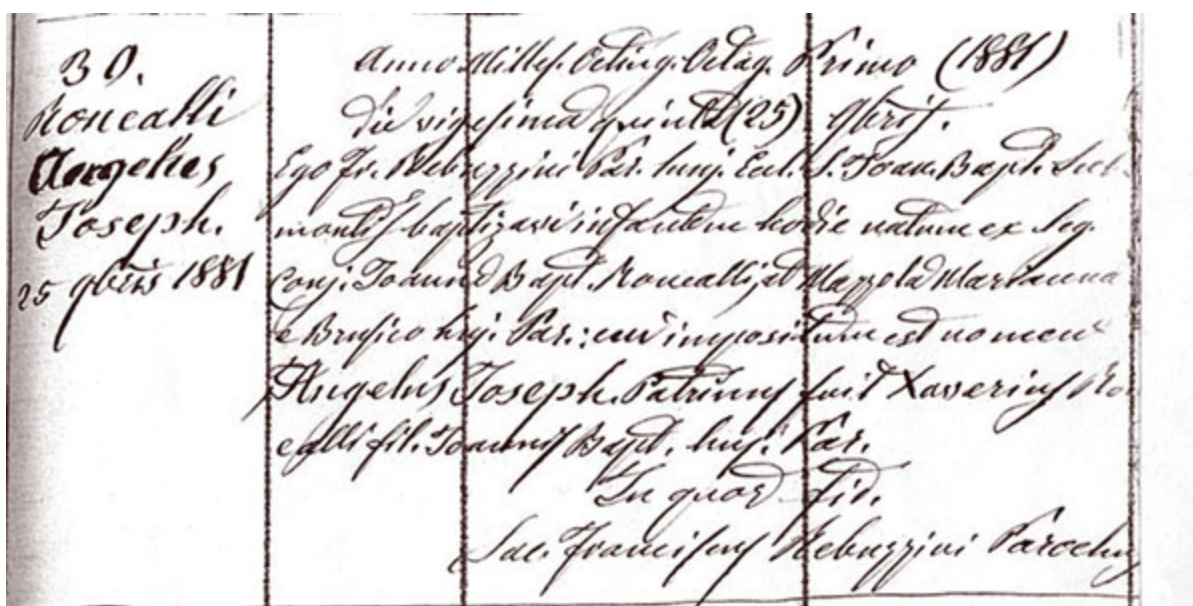 30.
Roncalli
Angelus
Joseph.
25 9bris 1881
Anno Milles. Octing. Octag. Primo (1881)
Die vigesima quinta (25) 9bris.
Ego Fr. Rebuzzini Par. huj. Eccl. S. Joan. Bapt. Sub-
montis baptizavi infantem hodie natum ex leg.
Conj. Joanne Bapt. Roncalli, et Mazzola Marianna
e Brusico huj. Par.: cui impositum est nomen
Angelus Joseph. Patrinus fuit Xaverius Ron
calli fil. Joannis Bapt. huj. Par.
In quor. fid.
Sac. Franciscus Rebuzzini Parochus